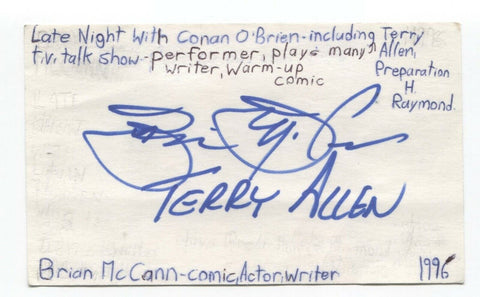 Late Night With Conan O'Brien-including Terry Allen,
t.v. talk show-performer, plays many
writer, warm-up Preparation
comic H.
Raymond.
Brian McCann
TERRY ALLEN
Brian McCann-comic, Actor, writer 1996